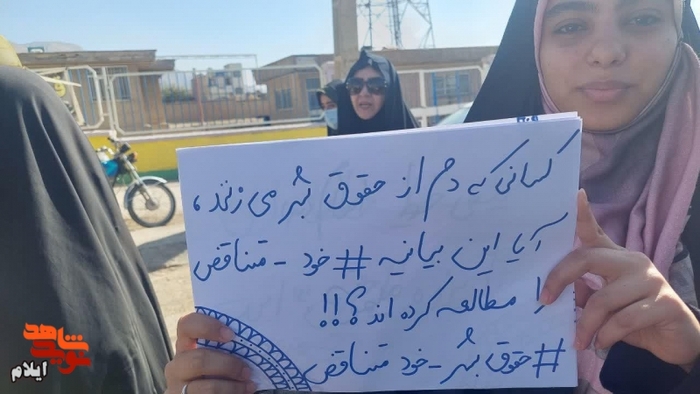 کسانی که دم از حقوق بشر می زنند،
آیا این بیانیه #خود_متناقض
را مطالعه کرده اند؟!!!
#حقوق بشر_خود متناقض
نوید شاهد
ایلام